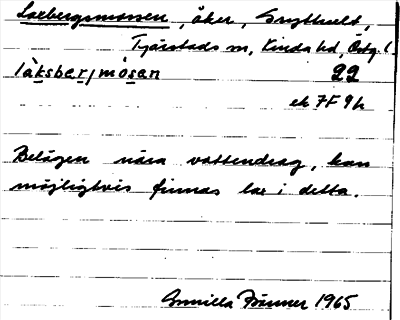 Laxbergsmossen, åker, Grythult,
Tjärstads sn, Kinda hd, Östg. l.
làksbærjmósen 22
ek 7F 9h
Belägen nära vattendrag, kan
möjligtvis finnas lax i detta.
Gunilla Fränner 1965